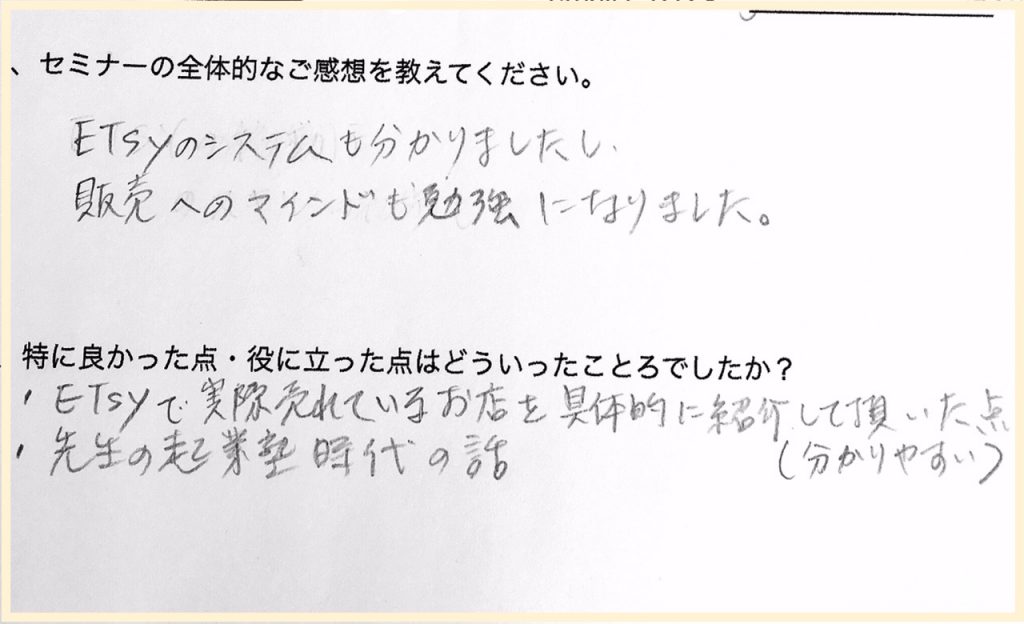 、セミナーの全体的なご感想を教えてください。
ETsyのシステムも分かりましたし、
販売へのマインドも勉強になりました。
特に良かった点・役に立った点はどういったことろでしたか？
・ETsyで実際売れているお店を具体的に紹介して頂いた点
(分かりやすい)
・先生の起業塾時代の話